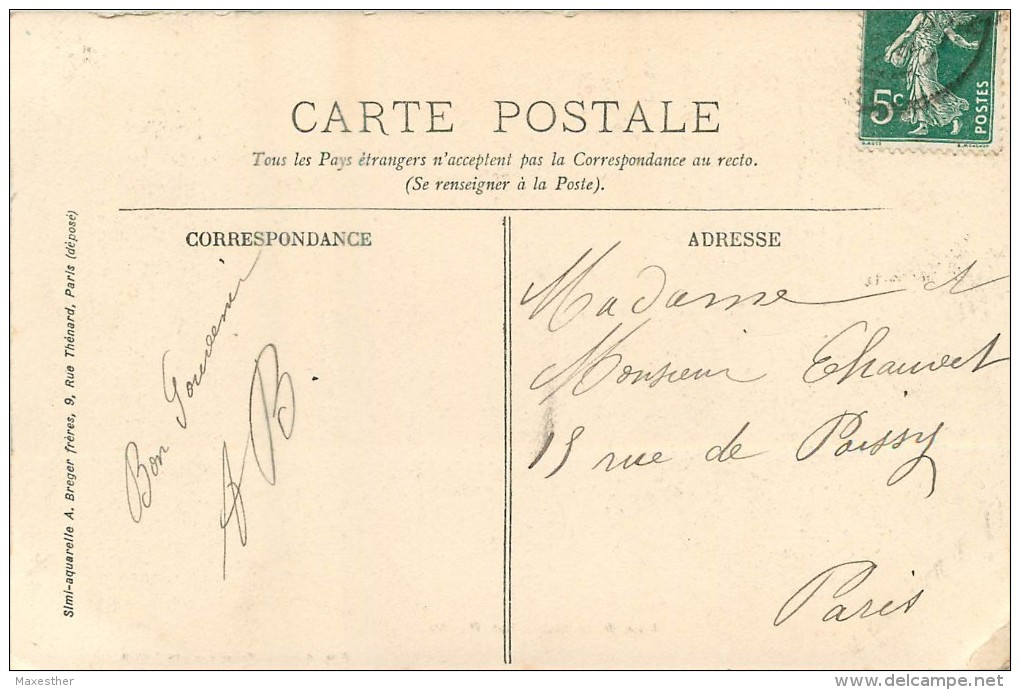 CARTE POSTALE
Tous les Pays étrangers n'acceptent pas la Correspondance au recto.
(Se renseigner à la Poste).
5c
POSTES
CORRESPONDANCE
Bon Souvenir
A B.
ADRESSE
Madame et
Monsieur Chauvet
15 rue de Poissy
Paris
Simi-aquarelle A. Breger frères, 9, Rue Thénard, Paris (déposé)
Maxesther
delcampe.net